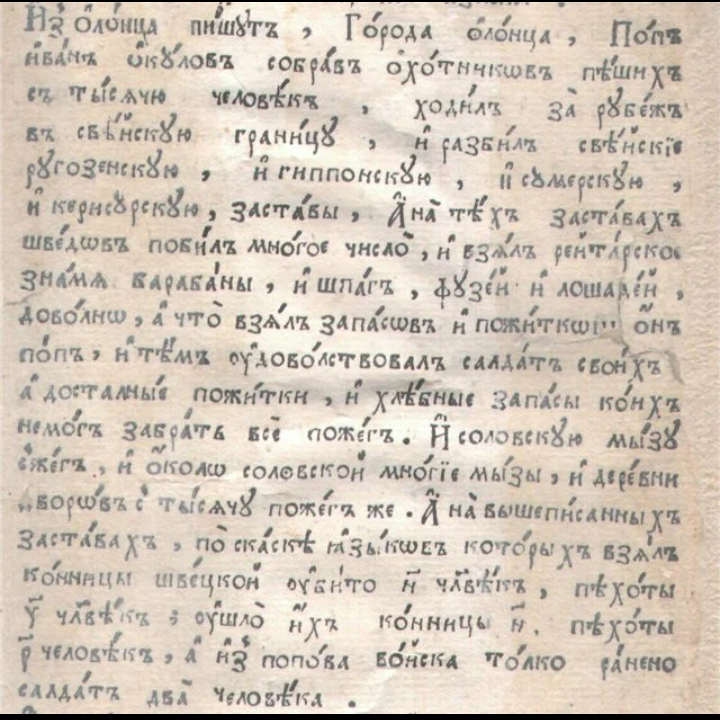 И҆з̾ о҆ло́нца пи́шꙋтъ, Го́рода о҆ло́нца, По́пъ
и҆ва́нъ ѻ҆кꙋ́ловъ собра́въ охо́тникѡвъ пѣ́шихъ
съ ты́сѧчю человѣ́къ, ходи́лъ за̀ рꙋбе́жъ
въ свѣ́йскꙋю грани́цꙋ, и҆ разби́лъ свѣ́йскїе
рꙋгозенскꙋю, и҆ гиппонскꙋю, и҆ сꙋмерскꙋю,
и҆ керисꙋрскꙋю, заста́вы, А҆ на̀ тѣ́хъ заста́вахъ
шве́дѡвъ поби́лъ мно́гое число̀, и҆ взѧ́лъ рейта́рское
зна́мѧ бараба́ны, и҆ шпа́гъ, фꙋзе́й и҆ лошаде́й,
дово́лнѡ, а҆ что̀ взѧ́лъ запа́сѡвъ и҆ пожи́ткѡвъ о҆́нъ
по́пъ, и҆ тѣ́мъ ѹ҆дово́лствовалъ салда́тъ свои́хъ
а҆ доста́лные пожи́тки, и҆ хлѣ́бные запа́сы ко́ихъ
немо́гъ забра́ть всѐ поже́гъ. И҆ соловскꙋю мы́зꙋ
сже́гъ, и҆ ѻ҆́колѡ соловской мно́гїе мы́зы, и҆ дере́вни
дворѡ́въ с̾ ты́сѧчꙋ поже́гъ же. А҆ на̀ вышепи́санныхъ
заста́вахъ, по̀ ска́скѣ ꙗ҆зы́кѡвъ кото́рыхъ взѧ́лъ
ко́нницы шве́цкой ѹ҆би́то н҃ чл҃вѣ́къ, пѣхо́ты
у҃ чл҃вѣ́къ; ѹ҆шло̀ и҆́хъ ко́нницы н҃. пѣхо́ты
р҃ человѣ́къ, а҆ и҆з̾ попо́ва во́йска то́лко ра́нено
салда́тъ два̀ человѣ́ка.